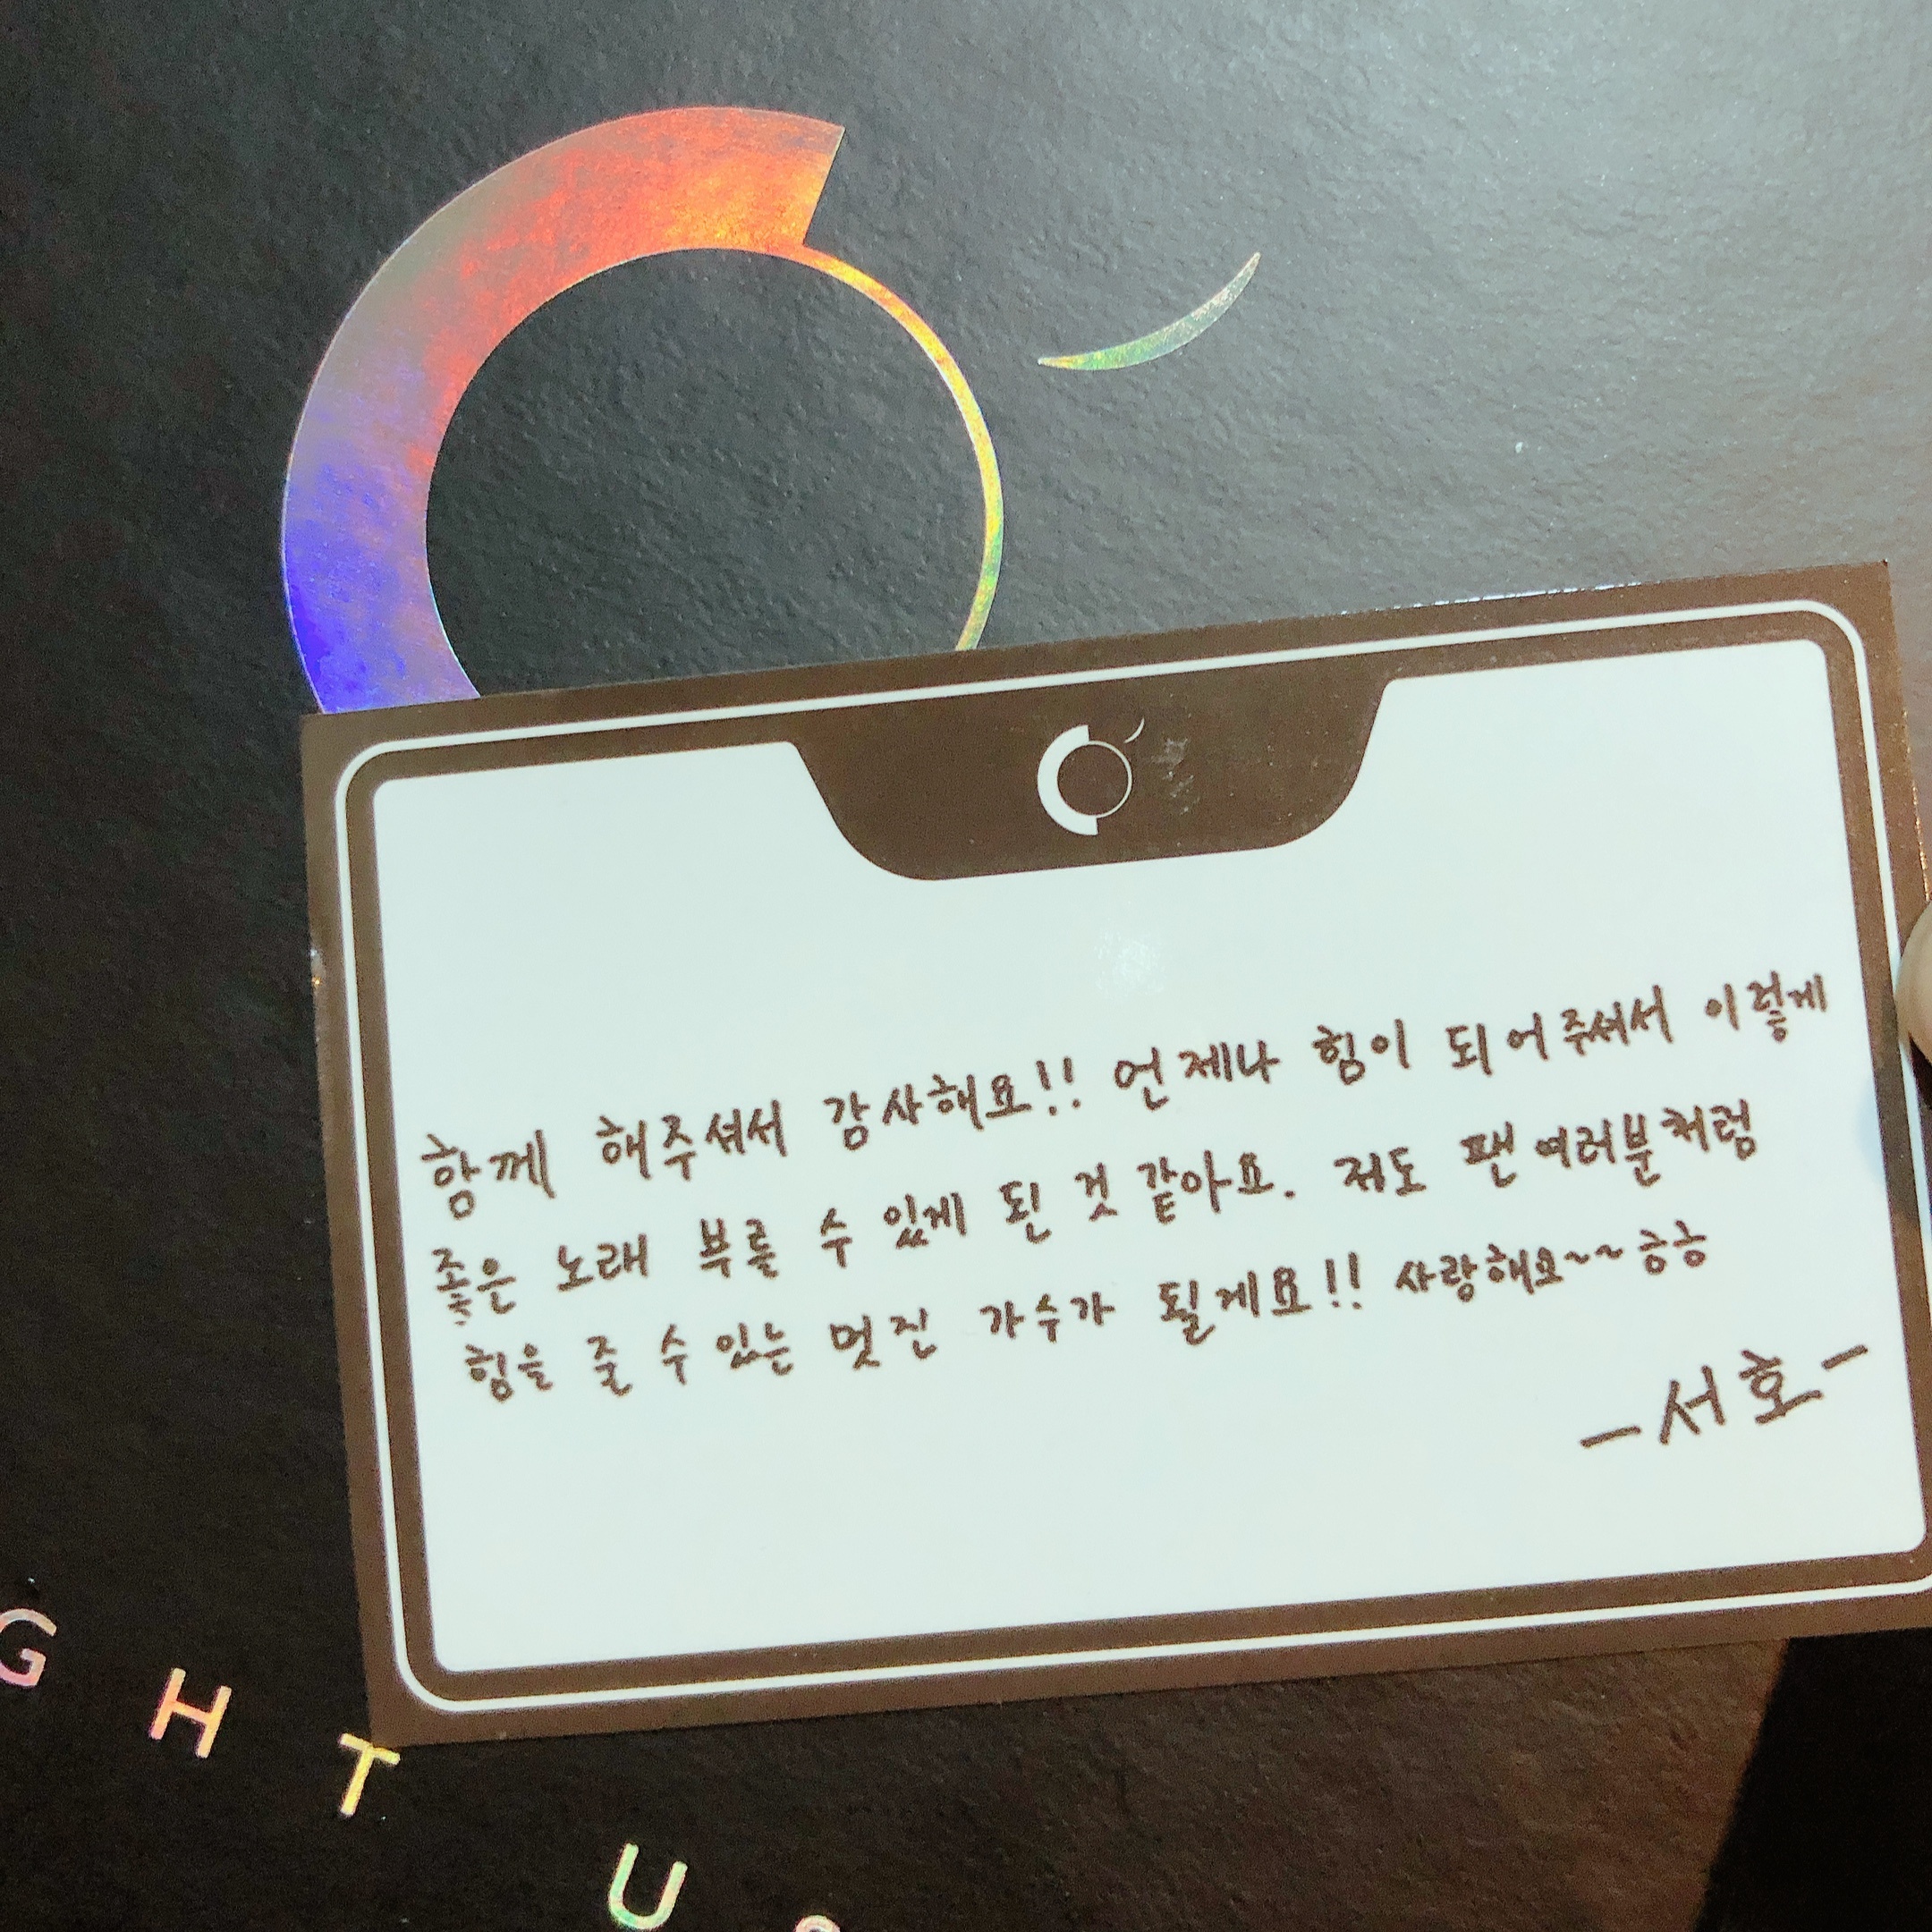 함께 해주셔서 감사해요!! 언제나 힘이 되어주셔서 이렇게
좋은 노래 부를 수 있게 된 것 같아요. 저도 팬 여러분처럼
힘을 줄 수 있는 멋진 가수가 될게요!! 사랑해요~~ㅎㅎ
-서호-
GHT US